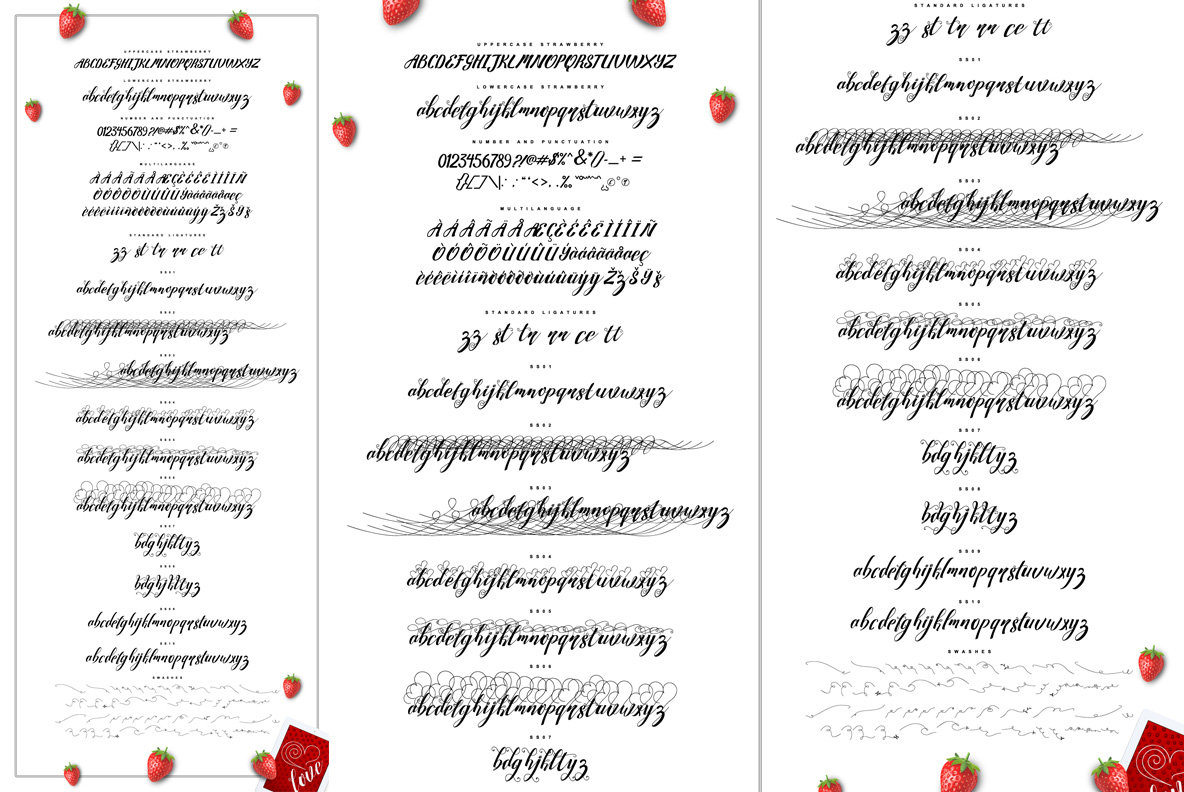 UPPERCASE STRAWBERRY
ABCDEFGHIJKLMNOPQRSTUVWXYZ
LOWERCASE STRAWBERRY
abcdefghijklmnopqrstuvwxyz
NUMBER AND PUNCTUATION
0123456789?!@#$%^&*()-_+ =
MULTILANGUAGE
ÀÁÂÃÄÅÆÇÈÉÊËÌÍÎÏÑ
STANDARD LIGATURES
SS01
abcdefghijklmnopqrstuvwxyz
SS02
abcdefghijklmnopqrstuvwxyz
SS03
abcdefghijklmnopqrstuvwxyz
SS04
abcdefghijklmnopqrstuvwxyz
SS05
abcdefghijklmnopqrstuvwxyz
SS06
abcdefghijklmnopqrstuvwxyz
SS07
bdghjkltyz
SS08
bdghjkltyz
SS09
abcdefghijklmnopqrstuvwxyz
SS10
abcdefghijklmnopqrstuvwxyz
SWASHES
love
UPPERCASE STRAWBERRY
ABCDEFGHIJKLMNOPQRSTUVWXYZ
LOWERCASE STRAWBERRY
abcdefghijklmnopqrstuvwxyz
NUMBER AND PUNCTUATION
0123456789?!@#$%^&*()-_+ =
MULTILANGUAGE
ÀÁÂÃÄÅÆÇÈÉÊËÌÍÎÏÑ
STANDARD LIGATURES
zz st tn nn ce tt
SS01
abcdefghijklmnopqrstuvwxyz
SS02
abcdefghijklmnopqrstuvwxyz
SS03
abcdefghijklmnopqrstuvwxyz
SS04
abcdefghijklmnopqrstuvwxyz
SS05
abcdefghijklmnopqrstuvwxyz
SS06
abcdefghijklmnopqrstuvwxyz
SS07
bdghjkltyz
STANDARD LIGATURES
zz st tn nn ce tt
SS01
abcdefghijklmnopqrstuvwxyz
SS02
abcdefghijklmnopqrstuvwxyz
SS03
abcdefghijklmnopqrstuvwxyz
SS04
abcdefghijklmnopqrstuvwxyz
SS05
abcdefghijklmnopqrstuvwxyz
SS06
abcdefghijklmnopqrstuvwxyz
SS07
bdghjkltyz
SS08
bdghjkltyz
SS09
abcdefghijklmnopqrstuvwxyz
SS10
abcdefghijklmnopqrstuvwxyz
SWASHES